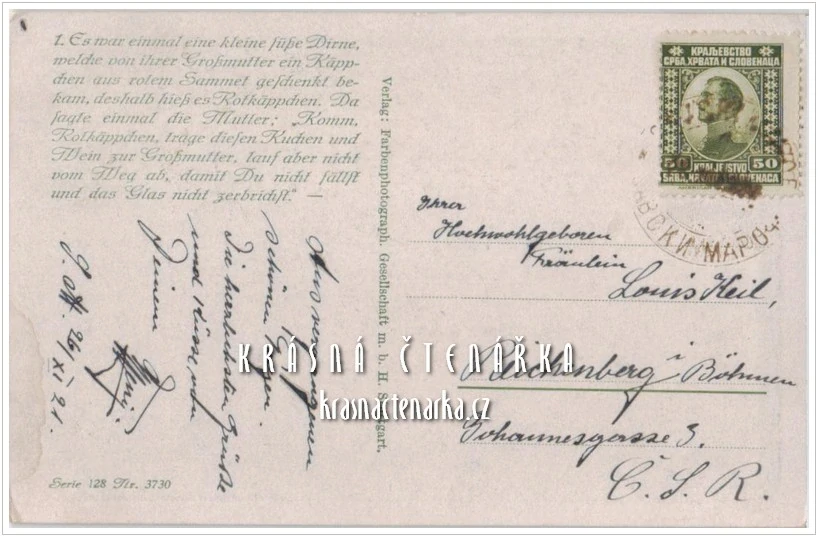 1. Es war einmal eine kleine süße Dirne,
welche von ihrer Großmutter ein Käpp-
chen aus rotem Sammet geschenkt be-
kam, deshalb hieß es Rotkäppchen. Da
sagte einmal die Mutter: „Komm,
Rotkäppchen, trage diesen Kuchen und
Wein zur Großmutter, lauf aber nicht
vom Weg ab, damit Du nicht fällst
und das Glas nicht zerbrichst.“ —
Aus vergangenen
schönen Tagen
die herzlichsten Grüße
und Küsse von
Deinem
26/XI 21.
Serie 128 Nr. 3730
Verlag: Farbenphotograph. Gesellschaft m. b. H. Stuttgart.
КРАЉЕВСТВО
СРБА, ХРВАТА И СЛОВЕНАЦА
50 50
KRALJEVSTVO
SRBA, HRVATA I SLOVENACA
Ihrer
Hochwohlgeboren
Fräulein
Louis Keil,
Reichenberg i
Böhmen
Johannesgasse 3.
Č. S. R.
KRÁSNÁ ČTENÁŘKA
krasnactenarka.cz